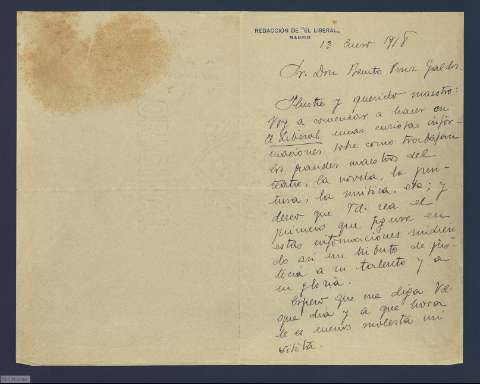 REDACCIÓN DE "EL LIBERAL"
MADRID
12 Enero 1918
Sr. Don Benito Perez Galdos.
Ilustre y querido maestro:
Voy a comenzar a hacer en
El Liberal unas curiosas infor-
maciones sobre como trabajan
los grandes maestros del
teatro, la novela, la pin-
tura, la música, etc; y
deseo que Vd. sea el
primero que figure en
estas informaciones rindien-
do así un tributo de jus-
ticia a su talento y a
su gloria.
Espero que me diga Vd.
que día y a que hora
le es menos molesta mi
visita.